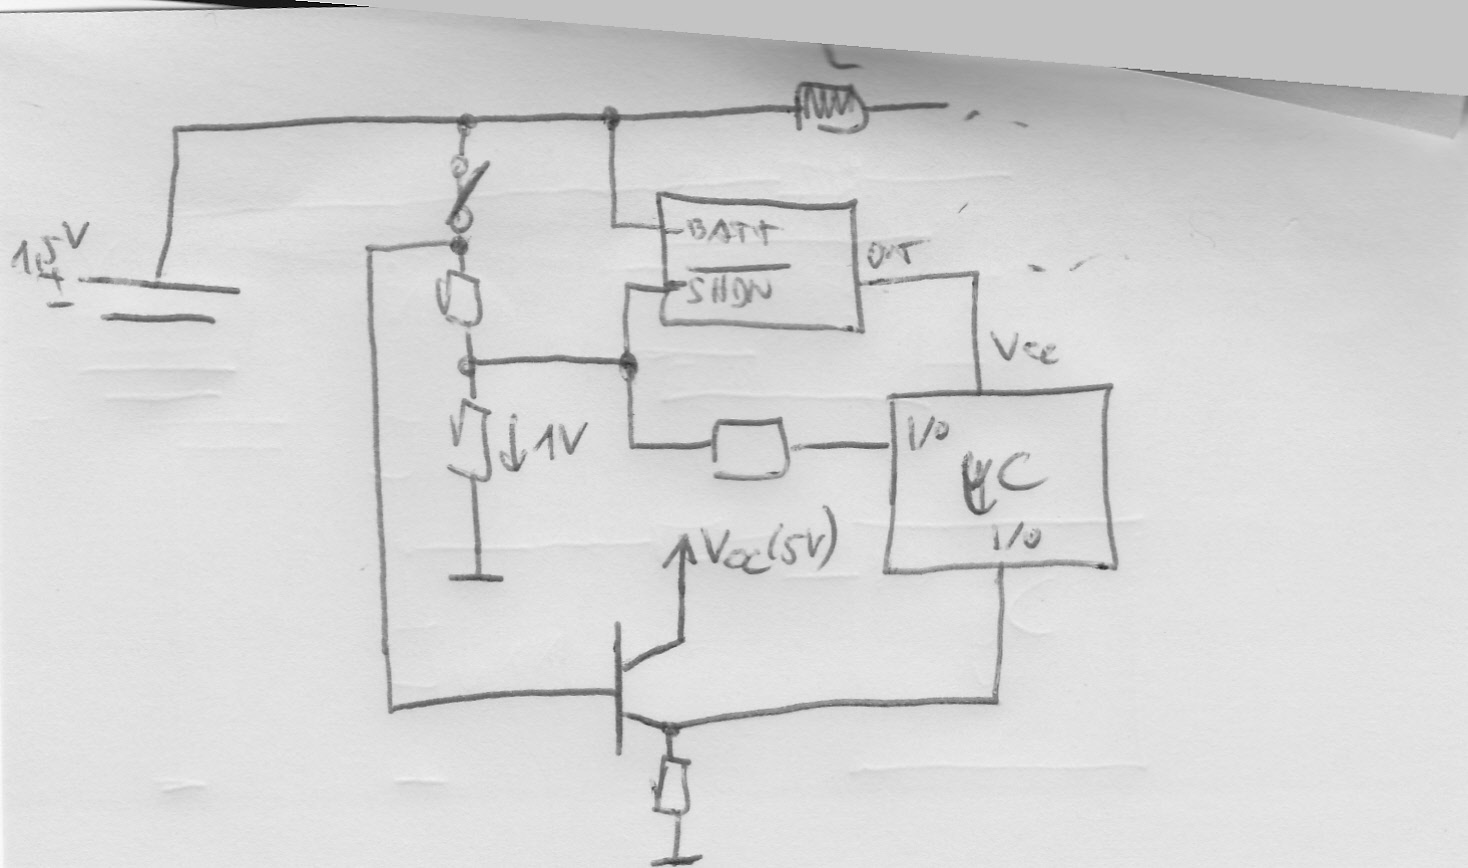 L
1,5V
+
-
BATT
SHDN
OUT
Vcc
↓1V
I/O
µC
I/O
Vcc(5V)